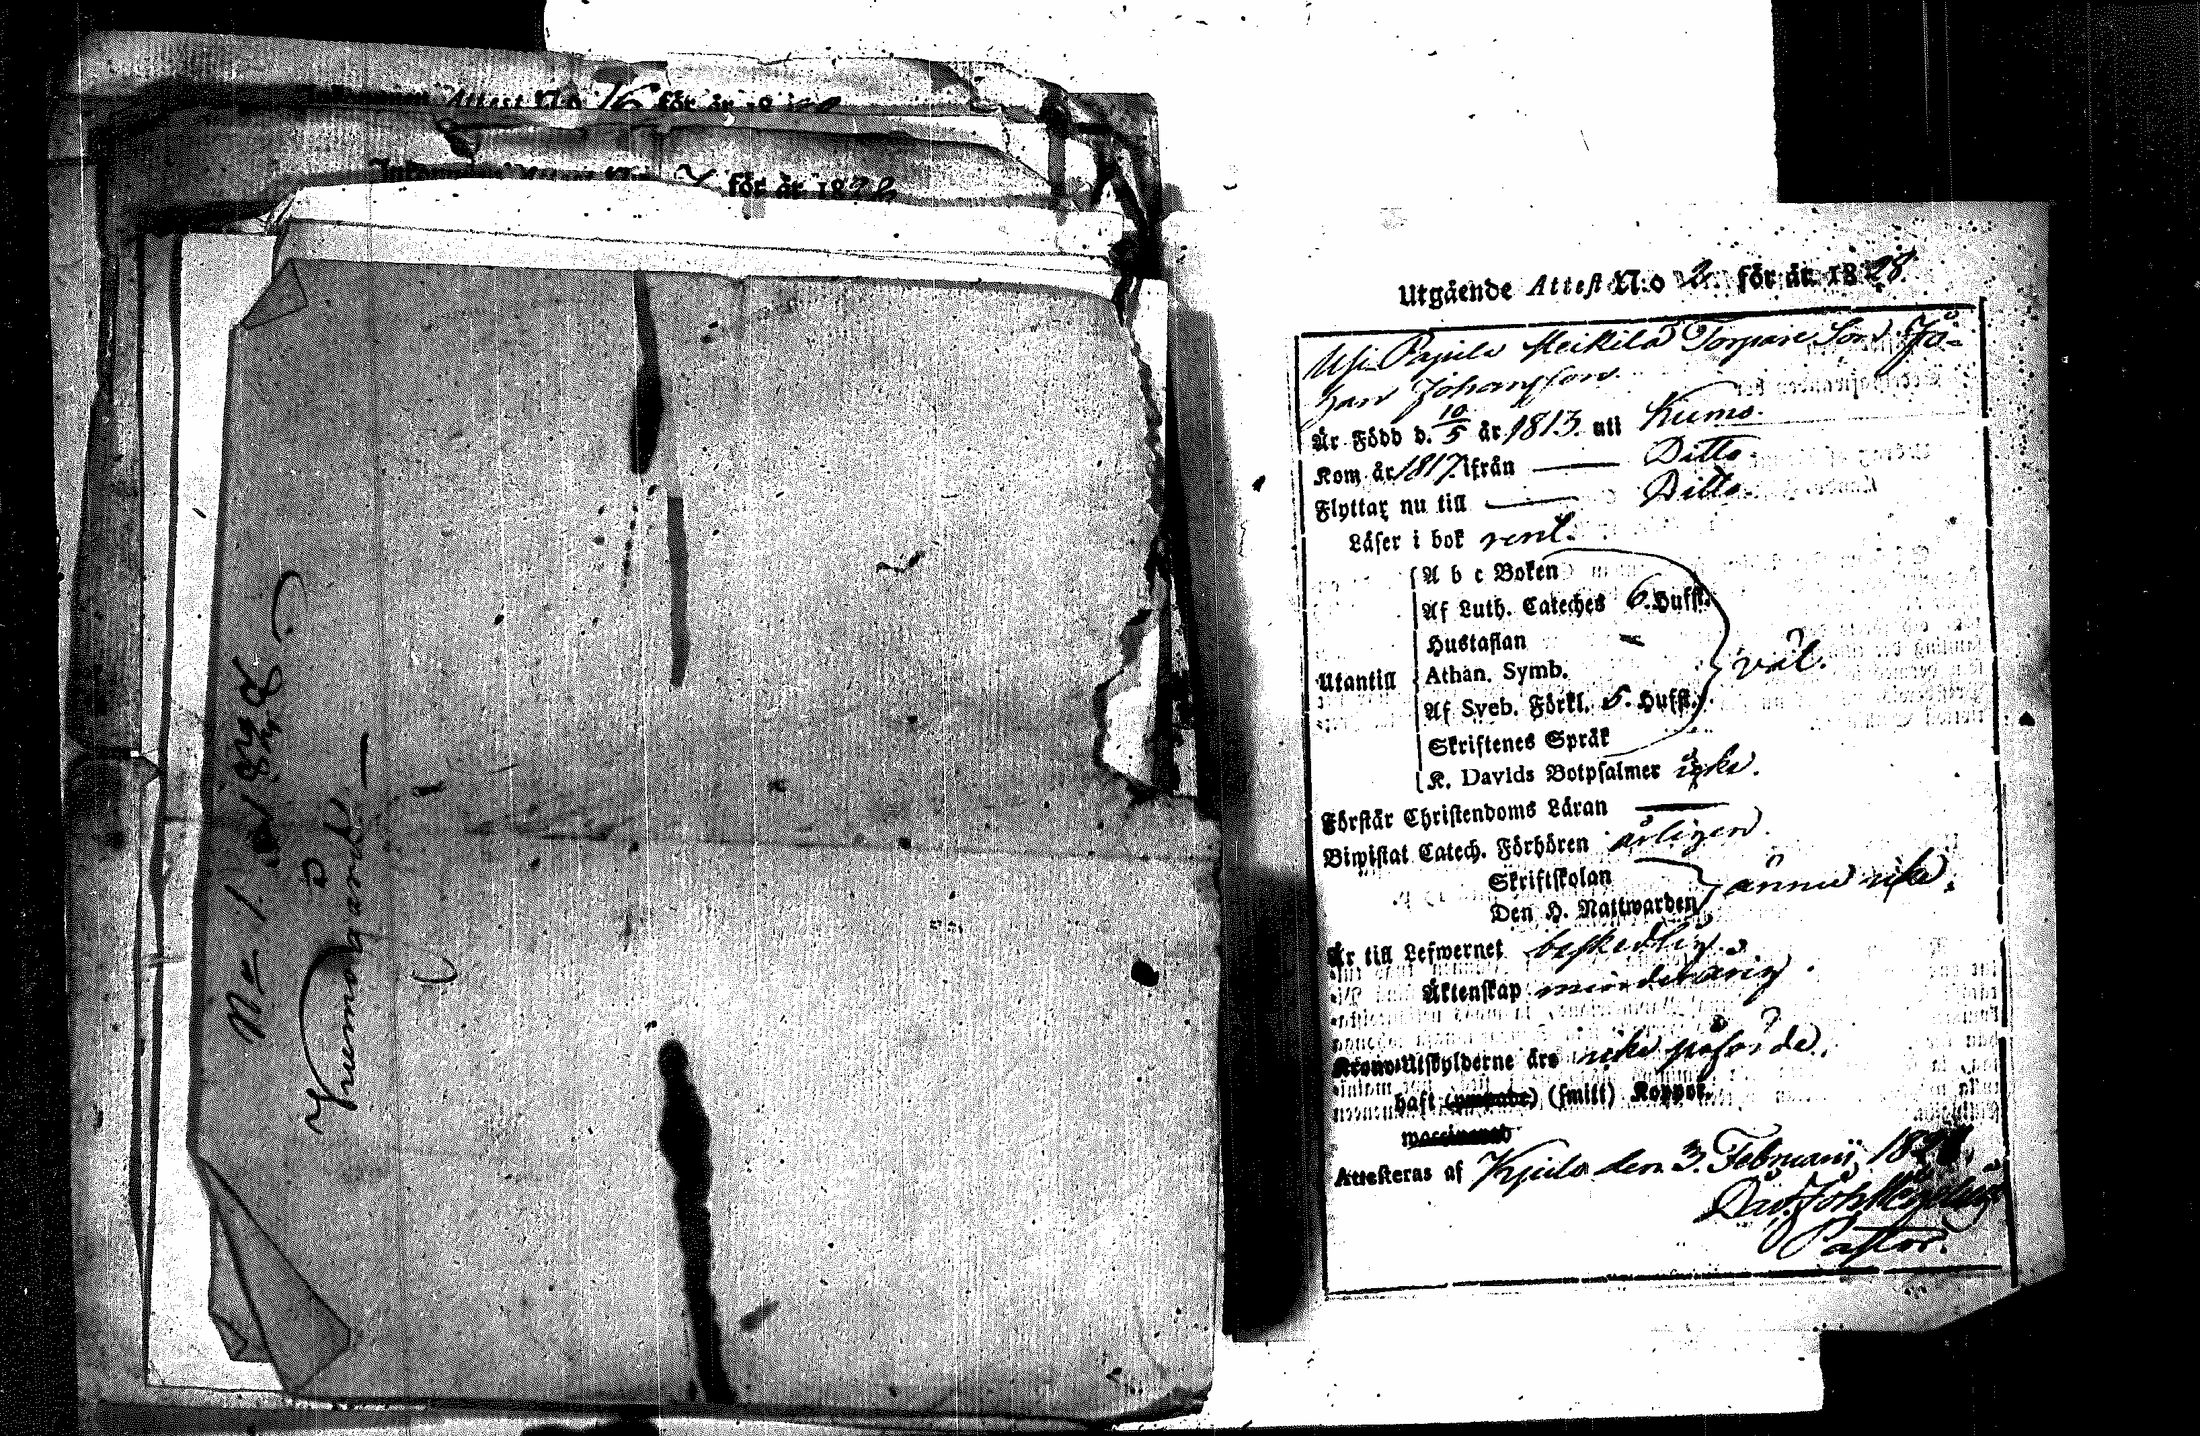 Inkommen Attest N:o 16 för år 18
Inkommen Attest N:o 7 för år 1828
N:o 1.
Kumogård
Utgående Attest N:o 2. för år 1828
Heikilä Torpare Son Jo-
han Johansson.
Är Född d. 10/5 år 1813. uti Kumo.
Kom år 1817. ifrån — Ditto
Flyttar nu till — Ditto.
Läser i bok rent.
A b c Boken
Af Luth. Cateches 6. Hufst.
Hustaflan -
Utantill Athan. Symb. väl.
Af Sveb. Förkl. 5. Hufst.
Skriftenes Språk
K. Davids Botpsalmer icke.
Förstår Christendoms Läran —
Biwistat Catech. Förhören årligen.
Skriftskolan
Den H. Nattwarden ännu icke.
Är till Lefwernet beskedlig.
Äktenskap minderårig.
Krono-Utskylderne äro icke påförde.
haft (smitt) Koppor.
Attesteras af Kjulo den 3. Februarii 1828.
Dav. Joh.
Pastor.